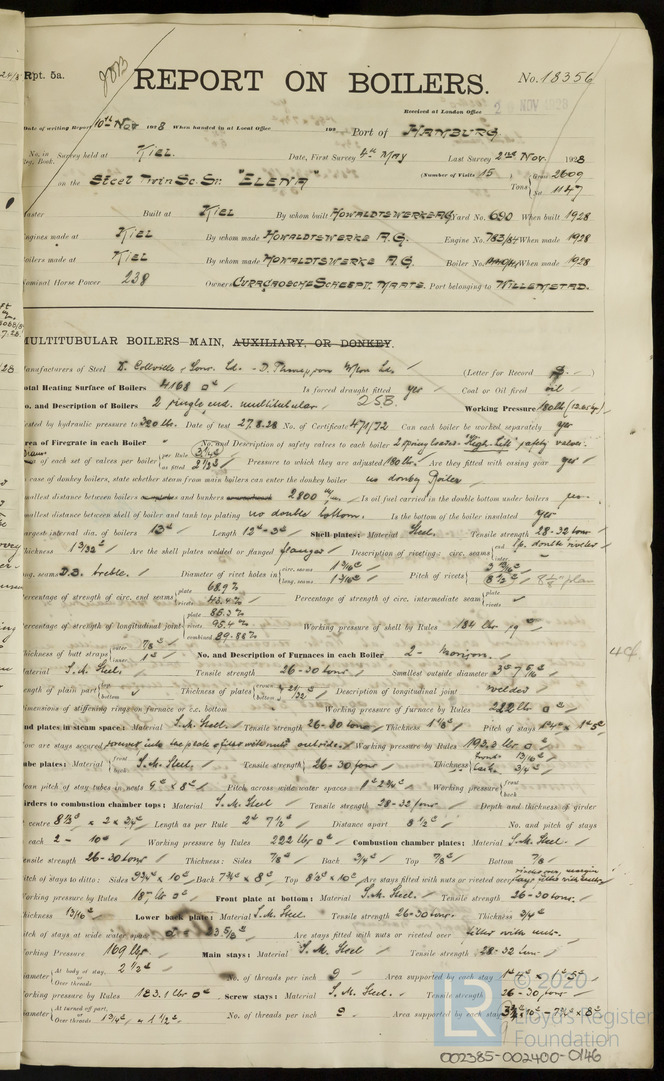 Rpt. 5a.
REPORT ON BOILERS.
No. 18356
Received at London Office
NOV 1928
Date of writing Report 10th Nov 1928 When handed in at Local Office 192 Port of HAMBURG
No. in Survey held at KIEL. Date, First Survey 4th May Last Survey 2nd Nov. 1928
Reg. Book. (Number of Visits 15) Gross 2609
on the Steel Twin Sc. Sr. "ELENA" Tons Net 1147
Master Built at KIEL By whom built HOWALDTSWERKE A.G. Yard No. 690 When built 1928
Engines made at KIEL By whom made HOWALDTSWERKE A.G. Engine No. 783/84 When made 1928
Boilers made at KIEL By whom made HOWALDTSWERKE A.G. Boiler No. When made 1928
Nominal Horse Power 238 Owners CURACAOSCHE SCHEEPV. MAATS. Port belonging to WILLEMSTAD.
MULTITUBULAR BOILERS MAIN, AUXILIARY, OR DONKEY.
Manufacturers of Steel D. Colville & Sons Ld. - (Letter for Record S.)
Total Heating Surface of Boilers 4168 Is forced draught fitted yes Coal or Oil fired oil
No. and Description of Boilers 2 single end. multitubular 2SB. Working Pressure 180 lbs
Tested by hydraulic pressure to 320 lbs. Date of test 27.8.28 No. of Certificate 471/72 Can each boiler be worked separately yes
Area of Firegrate in each Boiler No. and Description of safety valves to each boiler 2 spring loaded "High-Lift" safety valves.
Area of each set of valves per boiler per Rule as fitted Pressure to which they are adjusted 180 lbs. Are they fitted with easing gear yes
In case of donkey boilers, state whether steam from main boilers can enter the donkey boiler no donkey Boiler
Smallest distance between boilers or uptakes and bunkers or woodwork 2800 m/m Is oil fuel carried in the double bottom under boilers
Smallest distance between shell of boiler and tank top plating no double bottom. Is the bottom of the boiler insulated yes
Largest internal dia. of boilers 13' Length 12'-3" Shell plates: Material Steel. Tensile strength 28-32 tons
Thickness 1 3/32" Are the shell plates welded or flanged flanged Description of riveting: circ. seams end double rivetted inter.
long. seams D.B. treble. Diameter of rivet holes in circ. seams 1 3/16" long. seams 1 3/16" Pitch of rivets 8 1/2"
Percentage of strength of circ. end seams plate 68.9% rivets 43.4% Percentage of strength of circ. intermediate seam plate rivets
Percentage of strength of longitudinal joint plate 86.3% rivets 95.4% combined 89.88% Working pressure of shell by Rules 184 lbs
Thickness of butt straps outer 7/8" inner 1" No. and Description of Furnaces in each Boiler 2 - Morison.
Material S.M. Steel Tensile strength 26-30 tons Smallest outside diameter
Length of plain part top bottom Thickness of plates crown bottom 21/32" Description of longitudinal joint welded
Dimensions of stiffening rings on furnace or c.c. bottom Working pressure of furnace by Rules 222 lbs
End plates in steam space: Material S.M. Steel. Tensile strength 26-30 tons Thickness 1 1/8" Pitch of stays
How are stays secured screwed into the plate & fitted with nuts outside. Working pressure by Rules
Tube plates: Material front back S.M. Steel. Tensile strength 26-30 tons Thickness front 13/16" back 3/4"
Mean pitch of stay tubes in nests 9" x 8" Pitch across wide water spaces Working pressure front back
Girders to combustion chamber tops: Material S.M. Steel Tensile strength 28-32 tons Depth and thickness of girder
at centre 8 1/2" x 2 x 3/4" Length as per Rule 2' 7 1/2" Distance apart 8 1/2" No. and pitch of stays
in each 2 - 10" Working pressure by Rules 222 lbs Combustion chamber plates: Material S.M. Steel.
Tensile strength 26-30 tons Thickness: Sides 7/8" Back 3/4" Top 7/8" Bottom 7/8
Pitch of stays to ditto: Sides 9 3/4" x 10" Back 7 3/4" x 8" Top 8 1/2" x 10" Are stays fitted with nuts or riveted over
Working pressure by Rules Front plate at bottom: Material S.M. Steel. Tensile strength 26-30 tons.
Thickness 13/16" Lower back plate: Material S.M. Steel Tensile strength 26-30 tons. Thickness 3/4"
Pitch of stays at wide water space Are stays fitted with nuts or riveted over fitted with nuts.
Working Pressure 169 lbs Main stays: Material S.M. Steel Tensile strength 28-32 tons
Diameter At body of stay, or Over threads 2 1/2" No. of threads per inch 9 Area supported by each stay
Working pressure by Rules 183.1 lbs Screw stays: Material S.M. Steel. Tensile strength 26-30 tons
Diameter At turned off part, or Over threads 1 3/4" x 1 1/2" No. of threads per inch 9 Area supported by each stay
© 2020
LR Lloyd's Register
Foundation
002385-002400-0146